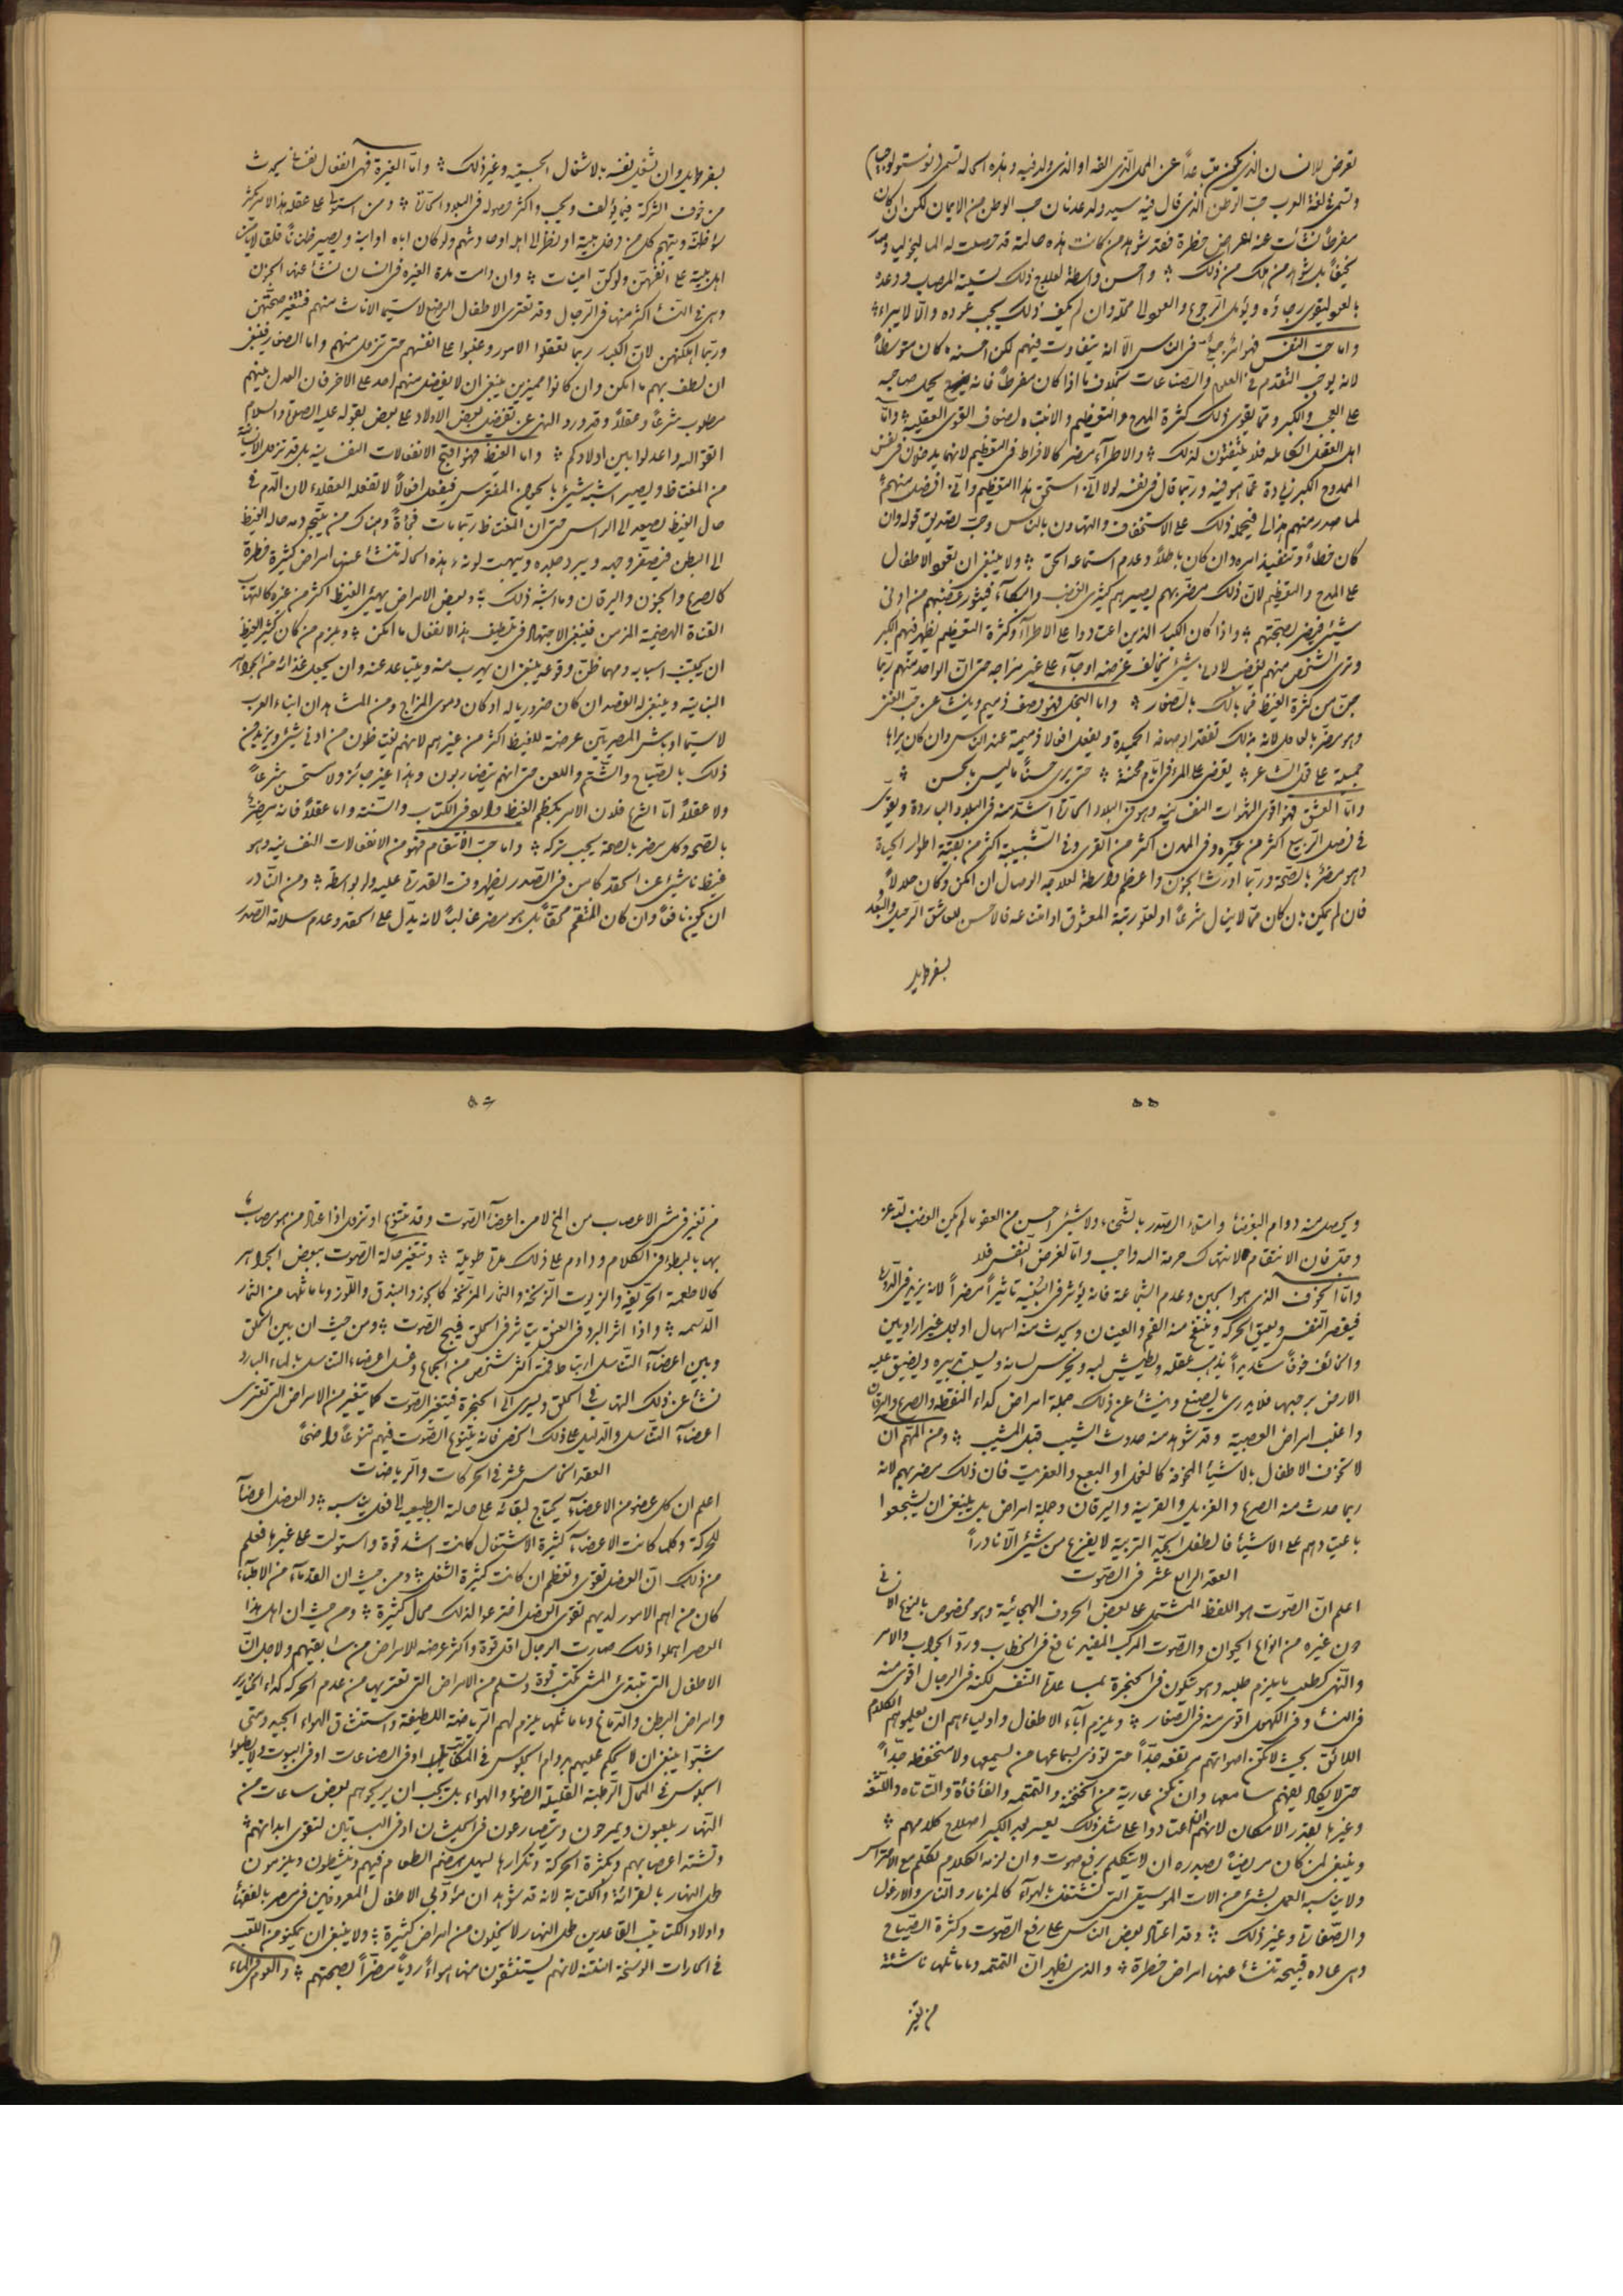 تعرض للانسان الذي يكون متباعداً عن المحل الذي الفه او الذي ولد فيه وهذه الحالة تسمى (نوستولوجيا)
وتسمى في لغة العرب حب الوطن الذي قال فيه سيد ولد عدنان حب الوطن من الايمان لكن ان كان
مفرطاً نشأت عنه اعراض خطرة فقد شوهد من كانت هذه حالته قد حصلت له الماليخوليا وصار
نحيفاً بل شوهد من هلك من ذلك واحسن واسطة لعلاج ذلك تسلية المصاب ووعده
بالعود ليقوى رجاؤه ويؤمل الرجوع والعود الى محله وان لم يكف ذلك يجب عوده والا لا يبرأ
واما حب النفس فهو امر جبلي في الناس الا انه يتفاوت فيهم لكن احسنه ما كان متوسطاً
لانه يوجب التقدم في العلوم والصناعات بخلاف ما اذا كان مفرطاً فانه يحمل صاحبه
على العجب والكبر ومما يقوى ذلك كثرة المدح والتعظيم والانتباه لضعاف القوى العقلية واما
اهل العقل الكامل فلا يلتفتون لذلك والاطراء مضر كالافراط في التعظيم لانهما يدخلان في نفس
الممدوح الكبر زيادة عما هو فيه وربما قال في نفسه لولا اني استحق هذا التعظيم واني افضل منهم
لما صدر منهم هذا لي فيحمله ذلك على الاستخفاف والتهاون بالناس وحب تصديق قوله وان
كان خطأً وتنفيذ امره وان كان باطلاً وعدم استماعه الحق ولا ينبغي ان تعود الاطفال
على المدح والتعظيم لان ذلك مضر بهم يصيرهم كثيري الغضب والبكاء فيثور غضبهم من ادنى
شيئ فيضر بصحتهم واذا كان الكبار الذين اعتادوا على الاطراء وكثرة التعظيم يظهر فيهم الكبر
وترى الشخص منهم يغضب لادنى شيئ يخالف غرضه او جاء على غير مزاجه حتى ان الواحد منهم ربما
جن من كثرة الغيظ فما بالك بالصغار واما البخل فهو وصف ذميم وينشأ عن حب الغنى
وهو مضر بالعاقل لانه بذلك تفقد اوصافه الحميدة ويفعل افعالا ذميمة عند الناس وان كان يراها
جميلة على قول الشاعر يقضى على المرء في ايام محنته حتى يرى حسناً ما ليس بالحسن
واما العشق فهو اقوى الشهوات النفسانية وهو في البلاد الحارة اشد منه في البلاد الباردة ويقوى
في فصل الربيع اكثر من غيره وفي المدن اكثر من القرى وفي الشبيبة اكثر من بقية اطوار الحياة
وهو مضر بالصحة وربما اورث الجنون واعظم واسطة لعلاجه الوصال ان امكن وكان حلالاً
فان لم يمكن بان كان مما لا ينال شرعاً او لعلو رتبة المعشوق او امتناعه فالاحسن للعاشق الرحيل والبعد
بسفر طويل
بسفر طويل وان تشغل نفسه بالاشغال الجسيمة وغير ذلك واما الغيرة فهي انفعال نفساني يحدث
من خوف الشركة فيما يؤلف ويحب واكثر حصوله في البلاد الحارة ومن استولى على عقله هذا الامر كثر
سوء ظنه ويتهم كل من دخل بيته او نظر الى اهله او حادثهم ولو كان اباه او ابنه ويصير ظاناً قلقاً لا يأتمن
اهل بيته على انفسهن ولو كن امينات وان دامت مدة الغيرة في انسان نشأ عنها الحزن
وهي في النساء اكثر منها في الرجال وقد تعترى الاطفال الرضع لا سيما الاناث منهم فتتغير صحتهن
وربما اهلكتهن لان الكبار ربما تعقلوا الامور وغلبوا على انفسهم حتى تزول منهم واما الصغار فينبغي
ان يلطف بهم ما امكن وان كانوا مميزين ينبغي ان لا يفضل منهم احد على الاخر فان العدل بينهم
مطلوب شرعاً وعقلاً وقد ورد النهى عن تفضيل بعض الاولاد على بعض بقوله عليه الصلوة والسلام
اتقوا الله واعدلوا بين اولادكم واما الغيظ فهو اقبح الانفعالات النفسانية بل قد تزول الانسانية
من المغتاظ ويصير اشبه شيئ بالحيوان المفترس فيفعل افعالاً لا تفعله العقلاء لان الدم في
حال الغيظ يصعد الى الراس حتى ان المغتاظ ربما مات فجأةً وهناك من يتجه دمه حالة الغيظ
الى البطن فيصفر وجهه ويبرد جلده ويبهت لونه وهذه الحالة تنشأ عنها امراض كثيرة خطرة
كالصرع والجنون واليرقان وما اشبه ذلك وبعض الامراض يهيئ الغيظ اكثر من غيره كالتهاب
القناة الهضمية المزمن فينبغي الاجتهاد في تلطيف هذا الانفعال ما امكن ويلزم من كان كثير الغيظ
ان يجتنب اسبابه ومهما ظن وقوعه ينبغي ان يهرب منه ويتباعد عنه وان يجعل غذائه من الجواهر
النباتية وينبغي له الفصد ان كان ضرورياً له او كان دموى المزاج ومن المشاهد ان ابناء العرب
لا سيما اوباش المصريين عرضة للغيظ اكثر من غيرهم لانهم يغتاظون من ادنى شيئ ويزيدون
ذلك بالصياح والشتم واللعن حتى انهم يتضاربون وهذا غير جائز ولا مستحسن شرعاً
ولا عقلاً اما الشرع فلان الامر بكظم الغيظ وارد في الكتاب والسنة واما عقلاً فانه مضر
بالصحة وكل مضر بالصحة يجب تركه واما حب الانتقام فهو من الانفعالات النفسانية وهو
غيظ ناشئ عن الحقد كامن في الصدر يظهر وقت القدرة عليه ولو بواسطة ومن النادر
ان يكون نافعاً وان كان المنتقم محقاً بل هو مضر غالباً لانه يدل على الحقد وعدم سلامة الصدر
٥٥
ويحصل منه دوام البغضاء وامتلاء الصدر بالشحناء ولا شيئ احسن من العفو ما لم يكن الغضب لله عز
وجل فان الانتقام لانتهاك حرمة الله واجب واما لغرض النفس فلا
واما الخوف الذي هو الجبن وعدم الشجاعة فانه يؤثر في البنية تأثيراً مضراً لانه يزيد في الدورة
فيقصر النفس ويعيق الحركة وينفتح منه الفم والعينان ويحدث منه اسهال او بول غير اراديين
والخائف خوفاً شديداً يذهب عقله ويطيش لبه ويخرس لسانه ويسلب تدبيره ويضيق عليه
الارض برحبها فلا يدرى ما يصنع وينشأ عن ذلك جملة امراض كداء النقطة والصرع واليرقان
واغلب امراض العصبية وقد شوهد منه حدوث الشيب قبل المشيب ومن المهم ان
لا تخوف الاطفال بالاشياء المخوفة كالغول او البعبع والعفريت فان ذلك مضر بهم لانه
ربما حدث منه الصرع والفزع بالليل والقرينة واليرقان وجملة امراض بل ينبغي ان يشجعوا
باعتيادهم على الاشياء فالطفل الجيد التربية لا يفزع من شيئ الا نادراً
العقد الرابع عشر في الصوت
اعلم ان الصوت هو اللفظ المشتمل على بعض الحروف الهجائية وهو مخصوص بالنوع الانساني
دون غيره من انواع الحيوان والصوت المركب المفيد نافع في الخطاب ورد الجواب والامر
والنهى كطلب ما يلزم طلبه وهو يتكون في الحنجرة بمساعدة التنفس لكنه في الرجال اقوى منه
في النساء وفي الكهول اقوى منه في الصغار ويلزم آباء الاطفال واولياءهم ان يعلموهم الكلام
اللائق بحيث لا تكون اصواتهم مرتفعة جداً حتى تؤذى بسماعها من يسمعها ولا منخفضة جداً
حتى لا يكاد يفهم سامعها وان تكون عارية من الخنخنة والتمتمة والفأفأة والتأتأة واللثغة
وغيرها بقدر الامكان لانهم اذا اعتادوا على مثل ذلك يعسر بعد الكبر اصلاح كلامهم
وينبغي لمن كان مريضاً بصدره ان لا يتكلم برفع صوت وان لزمه الكلام تكلم مع الاحتراس
ولا يناسبه العمل بشيئ من الات الموسيقى التي تشتغل بالهواء كالمزمار والناى والارغول
والصفارة وغير ذلك وقد اعتاد بعض الناس على رفع الصوت وكثرة الصياح
وهى عادة قبيحة تنشأ عنها امراض خطرة والذى يظهر ان التمتمة وما ماثلها ناشئة
من تغير
٥٦
من تغير في مشى الاعصاب من المخ لا من اعضاء الصوت وقد تتنوع او تزول اذا اعتاد من هو مصاب
بها بالبطء في الكلام وداوم على ذلك مدة طويلة وتتغير حالة الصوت ببعض الجواهر
كالاطعمة الحريفة والزيوت الزنخة والثمار المزنخة كالجوز والبندق واللوز وما ماثلها من الثمار
الدسمة واذا اثر البرد في العنق يتأثر في الحلق فيبح الصوت ومن حيث ان بين الحلق
وبين اعضاء التناسل ارتباط فمتى اكثر شخص من الجماع وغسل اعضاء التناسل بالماء البارد
نشأ عن ذلك التهاب في الحلق ويسرى الى الحنجرة فيتغير الصوت كما يتغير من الامراض التي تعترى
اعضاء التناسل والدليل على ذلك الخصى فانه يتنوع الصوت فيهم تنوعاً واضحاً
العقد الخامس عشر في الحركات والرياضات
اعلم ان كل عضو من الاعضاء يحتاج لبقائه على حالته الطبيعية الى فعل يناسبه والعضل اعضاء
للحركة وكلما كانت الاعضاء كثيرة الاشتغال كانت اشد قوة واستولت على غيرها فعلم
من ذلك ان العضل تقوى وتعظم ان كانت كثيرة الشغل ومن حيث ان القدماء من الاطباء
كان من اهم الامور لديهم تقوى العضل اخترعوا لذلك محال كثيرة ومن حيث ان اهل هذا
العصر اهملوا ذلك صارت الرجال اقل قوة واكثر عرضة للامراض من سابقيهم ولاجل ان
الاطفال التي تبتدئ المشى تكتسب قوة وتسلم من الامراض التي تعتريها من عدم الحركة كداء الخنازير
وامراض البطن والدماغ وما ماثلها يلزم لهم الرياضة اللطيفة واستنشاق الهواء الجيد ومتى
شبوا ينبغي ان لا يحكم عليهم بدوام الجلوس في المكاتب او في الصناعات او في البيوت ولا يطيلوا
الجلوس في المحال الرطبة القليلة الضوء والهواء بل يجب ان يريحوهم بعض ساعات من
النهار يلعبون ويمرحون ويتصارعون في الحيشان او في البساتين لتقوى ابدانهم
وتشتد اعصابهم وبكثرة الحركة وتكرارها يسهل هضم الطعام فيهم وينشطون ويلزمون
طول النهار بالقرائة والكتابة لانه قد شوهد ان مؤدبي الاطفال المعروفين في مصر بالفقهاء
واولاد الكتاتيب القاعدين طول النهار لا يخلون من امراض كثيرة ولا ينبغي ان يمكنوا من اللعب
في الحارات الوسخة المنتنة لانهم يستنشقون منها هواءً ردياً مضراً بصحتهم والعوم في الماء